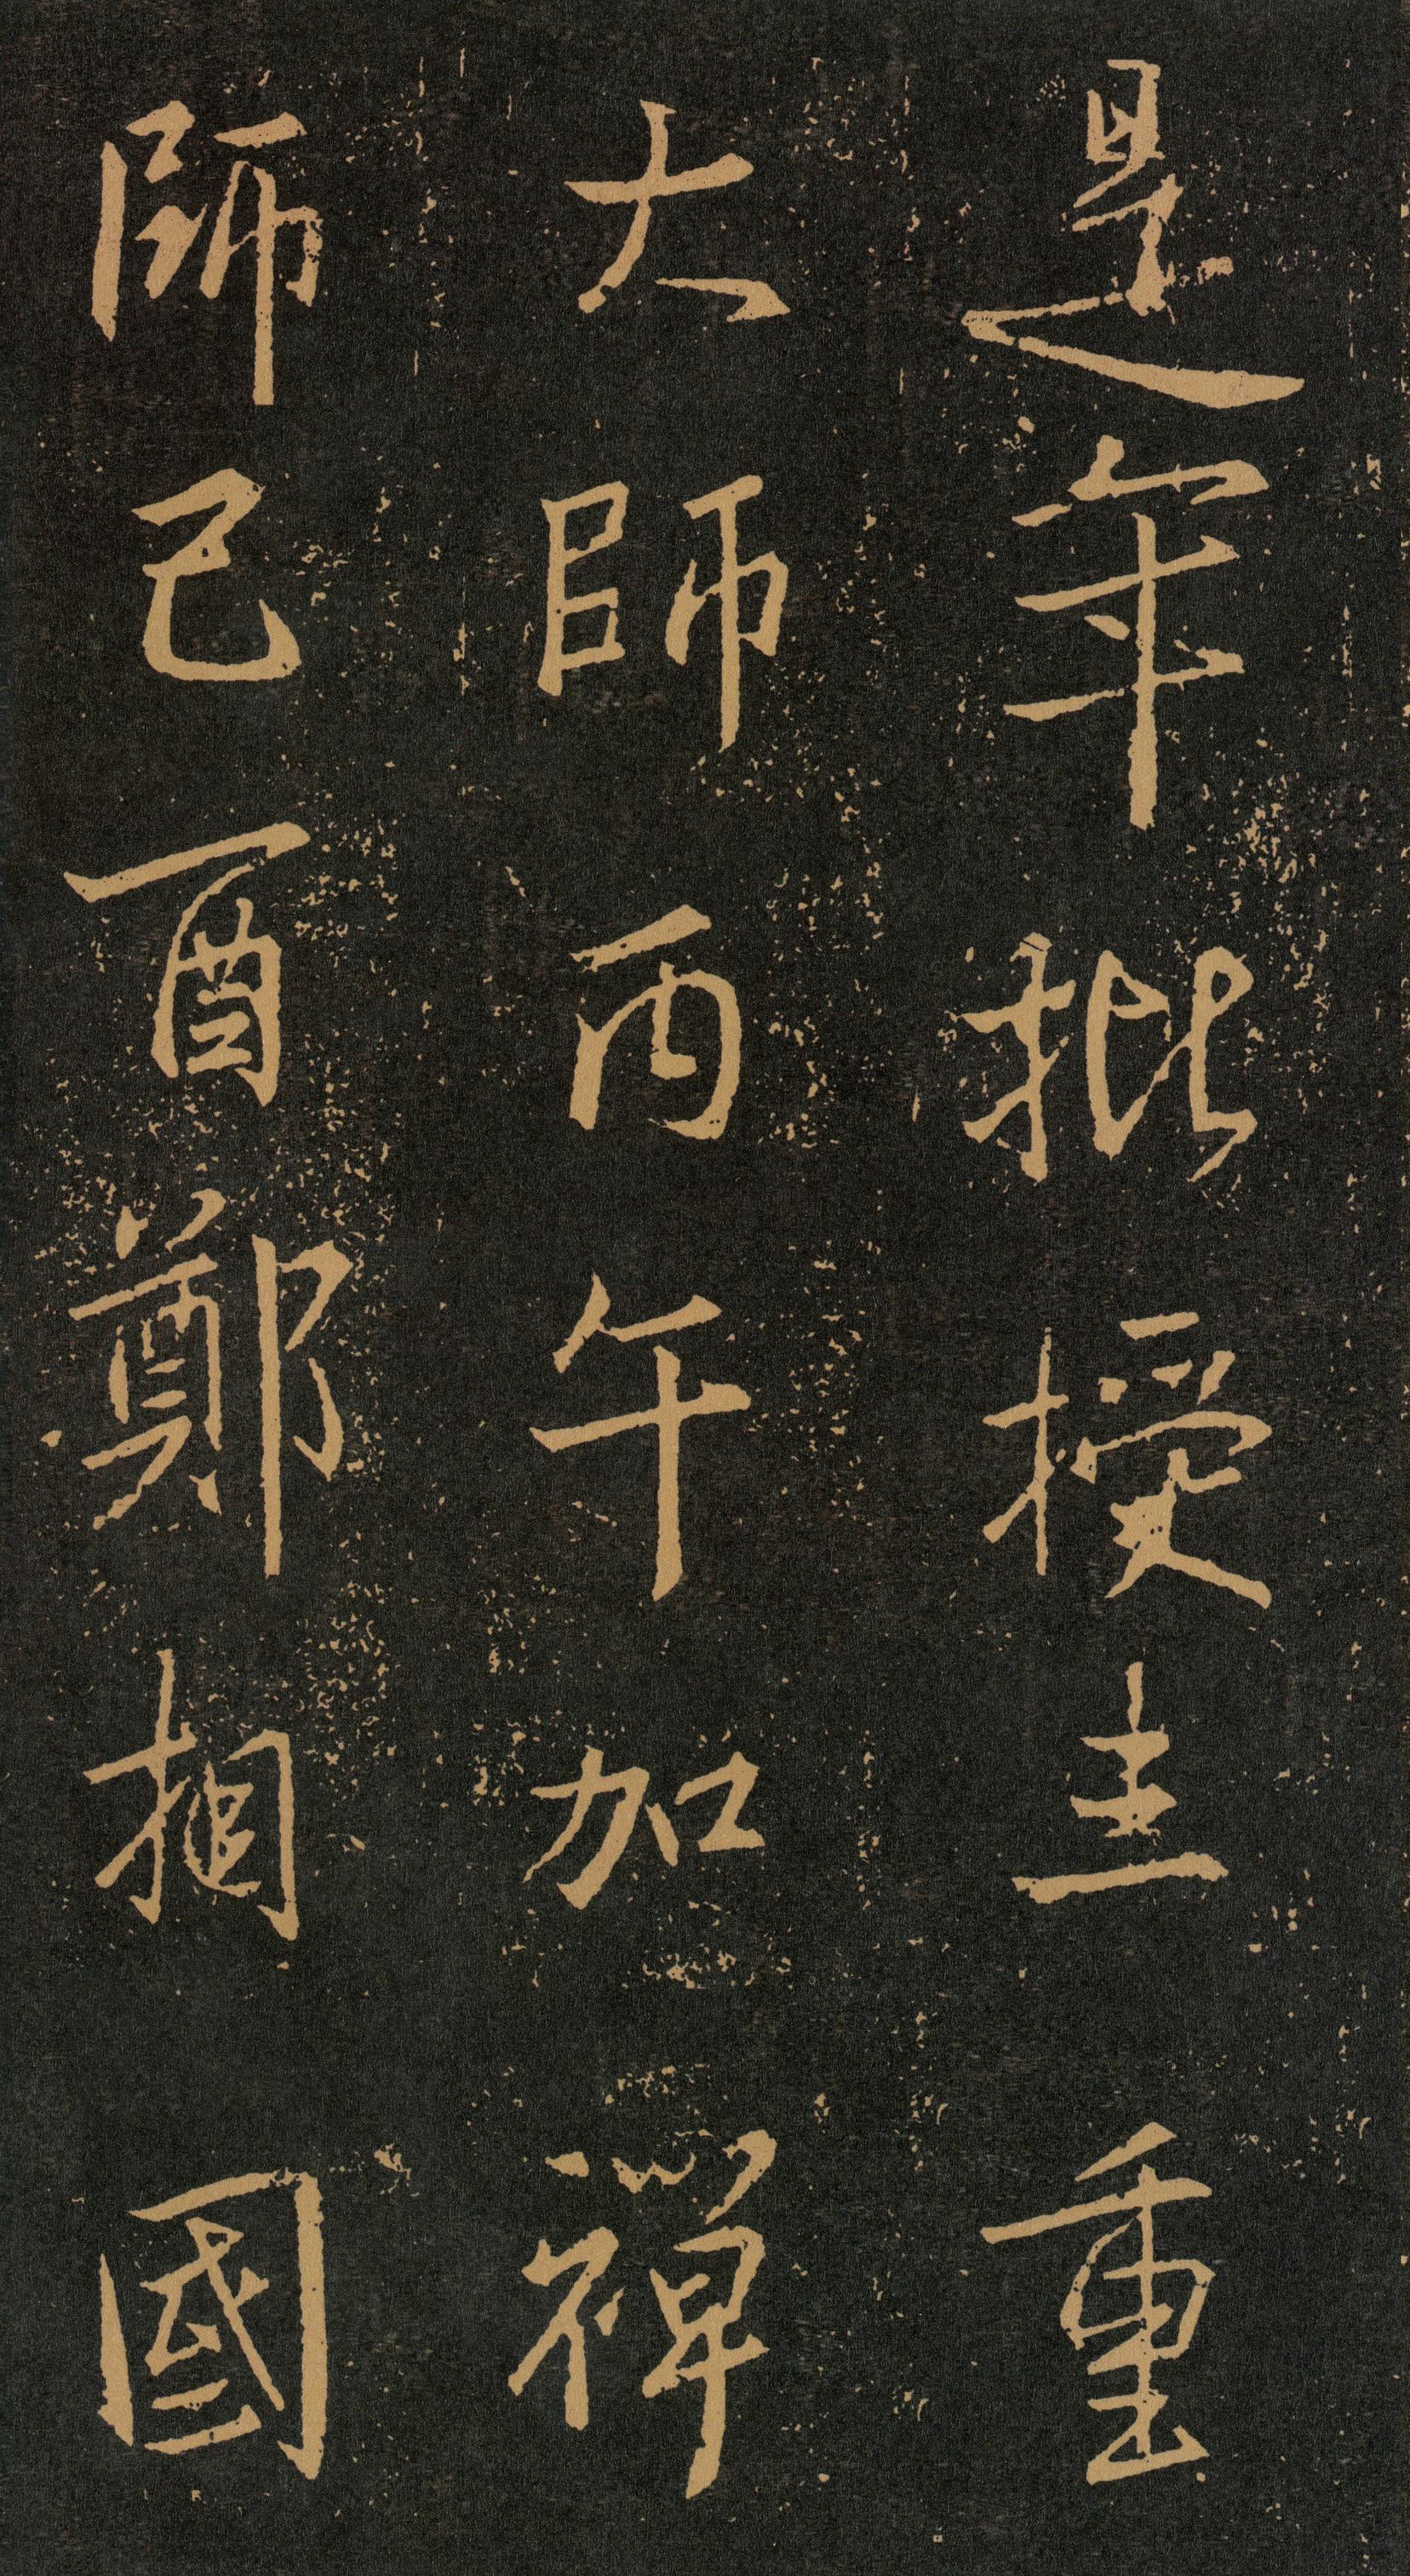 是年批授主重
大師丙午加禪
師己酉鄭相國